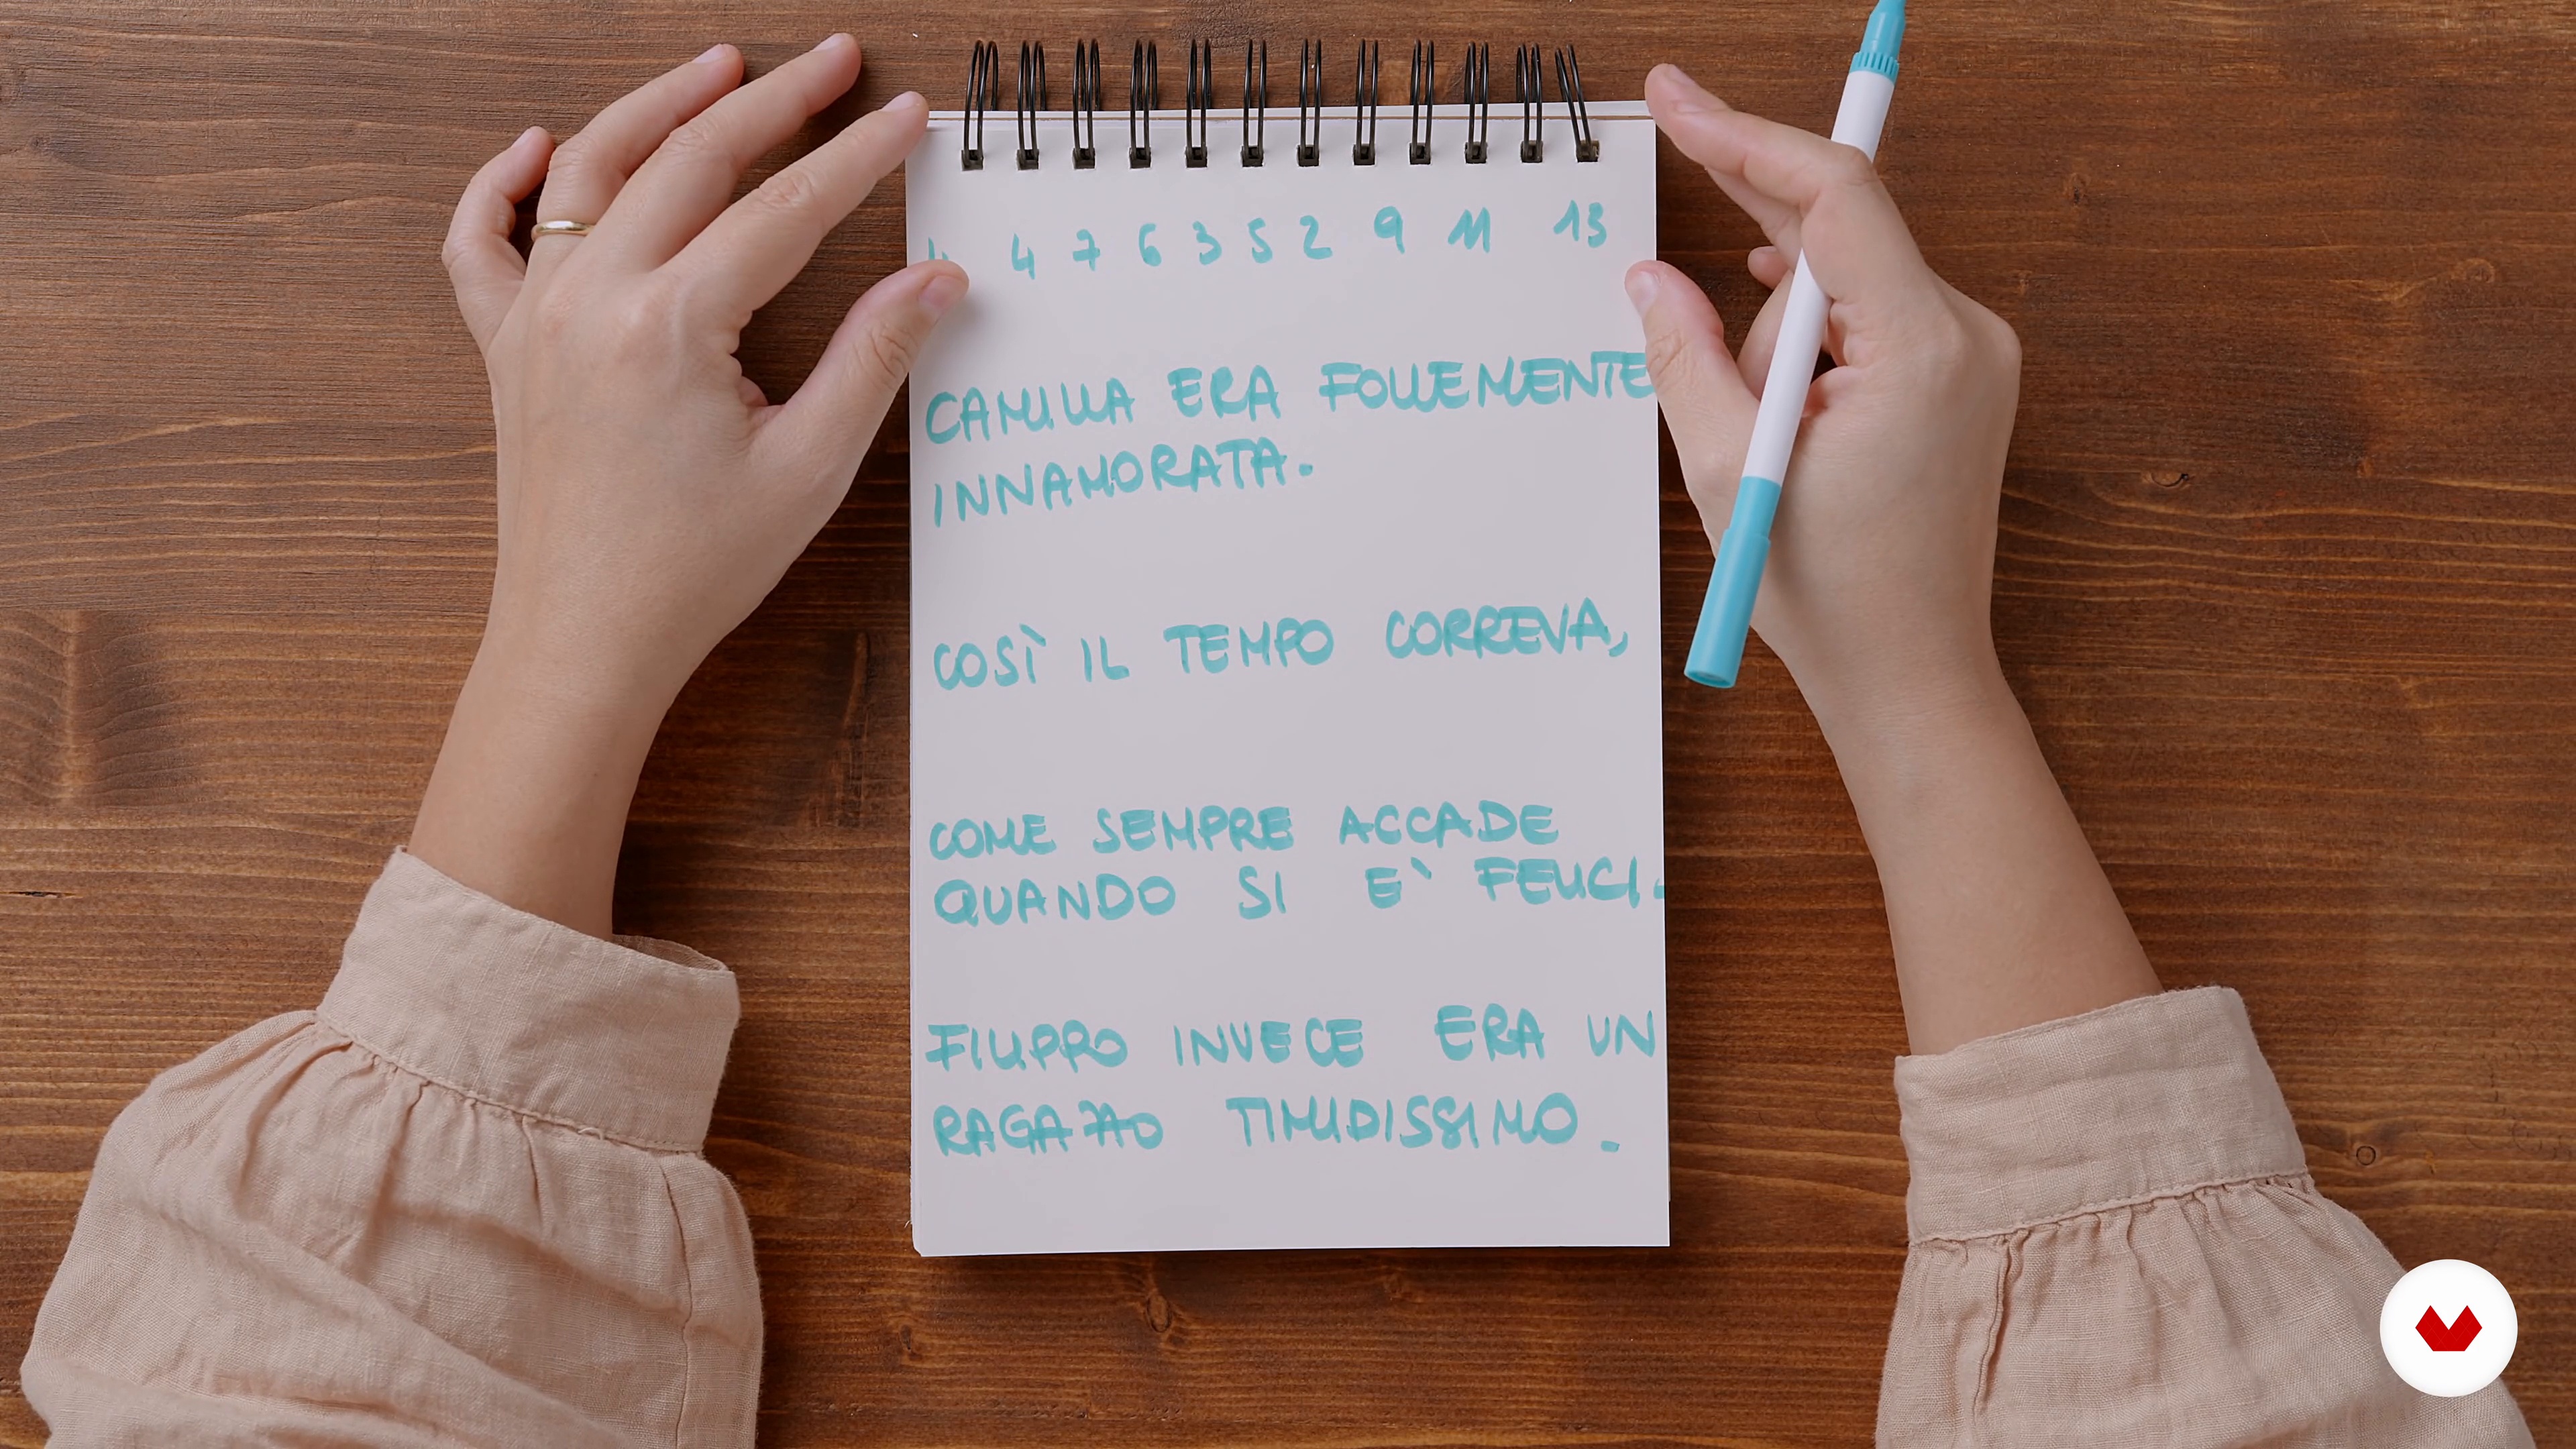 4 7 6 3 5 2 9 11 13
CAMILLA ERA FOLLEMENTE
INNAMORATA.
COSÌ IL TEMPO CORREVA,
COME SEMPRE ACCADE
QUANDO SI E` FELICI.
FILIPPO INVECE ERA UN
RAGAZZO TIMIDISSIMO.